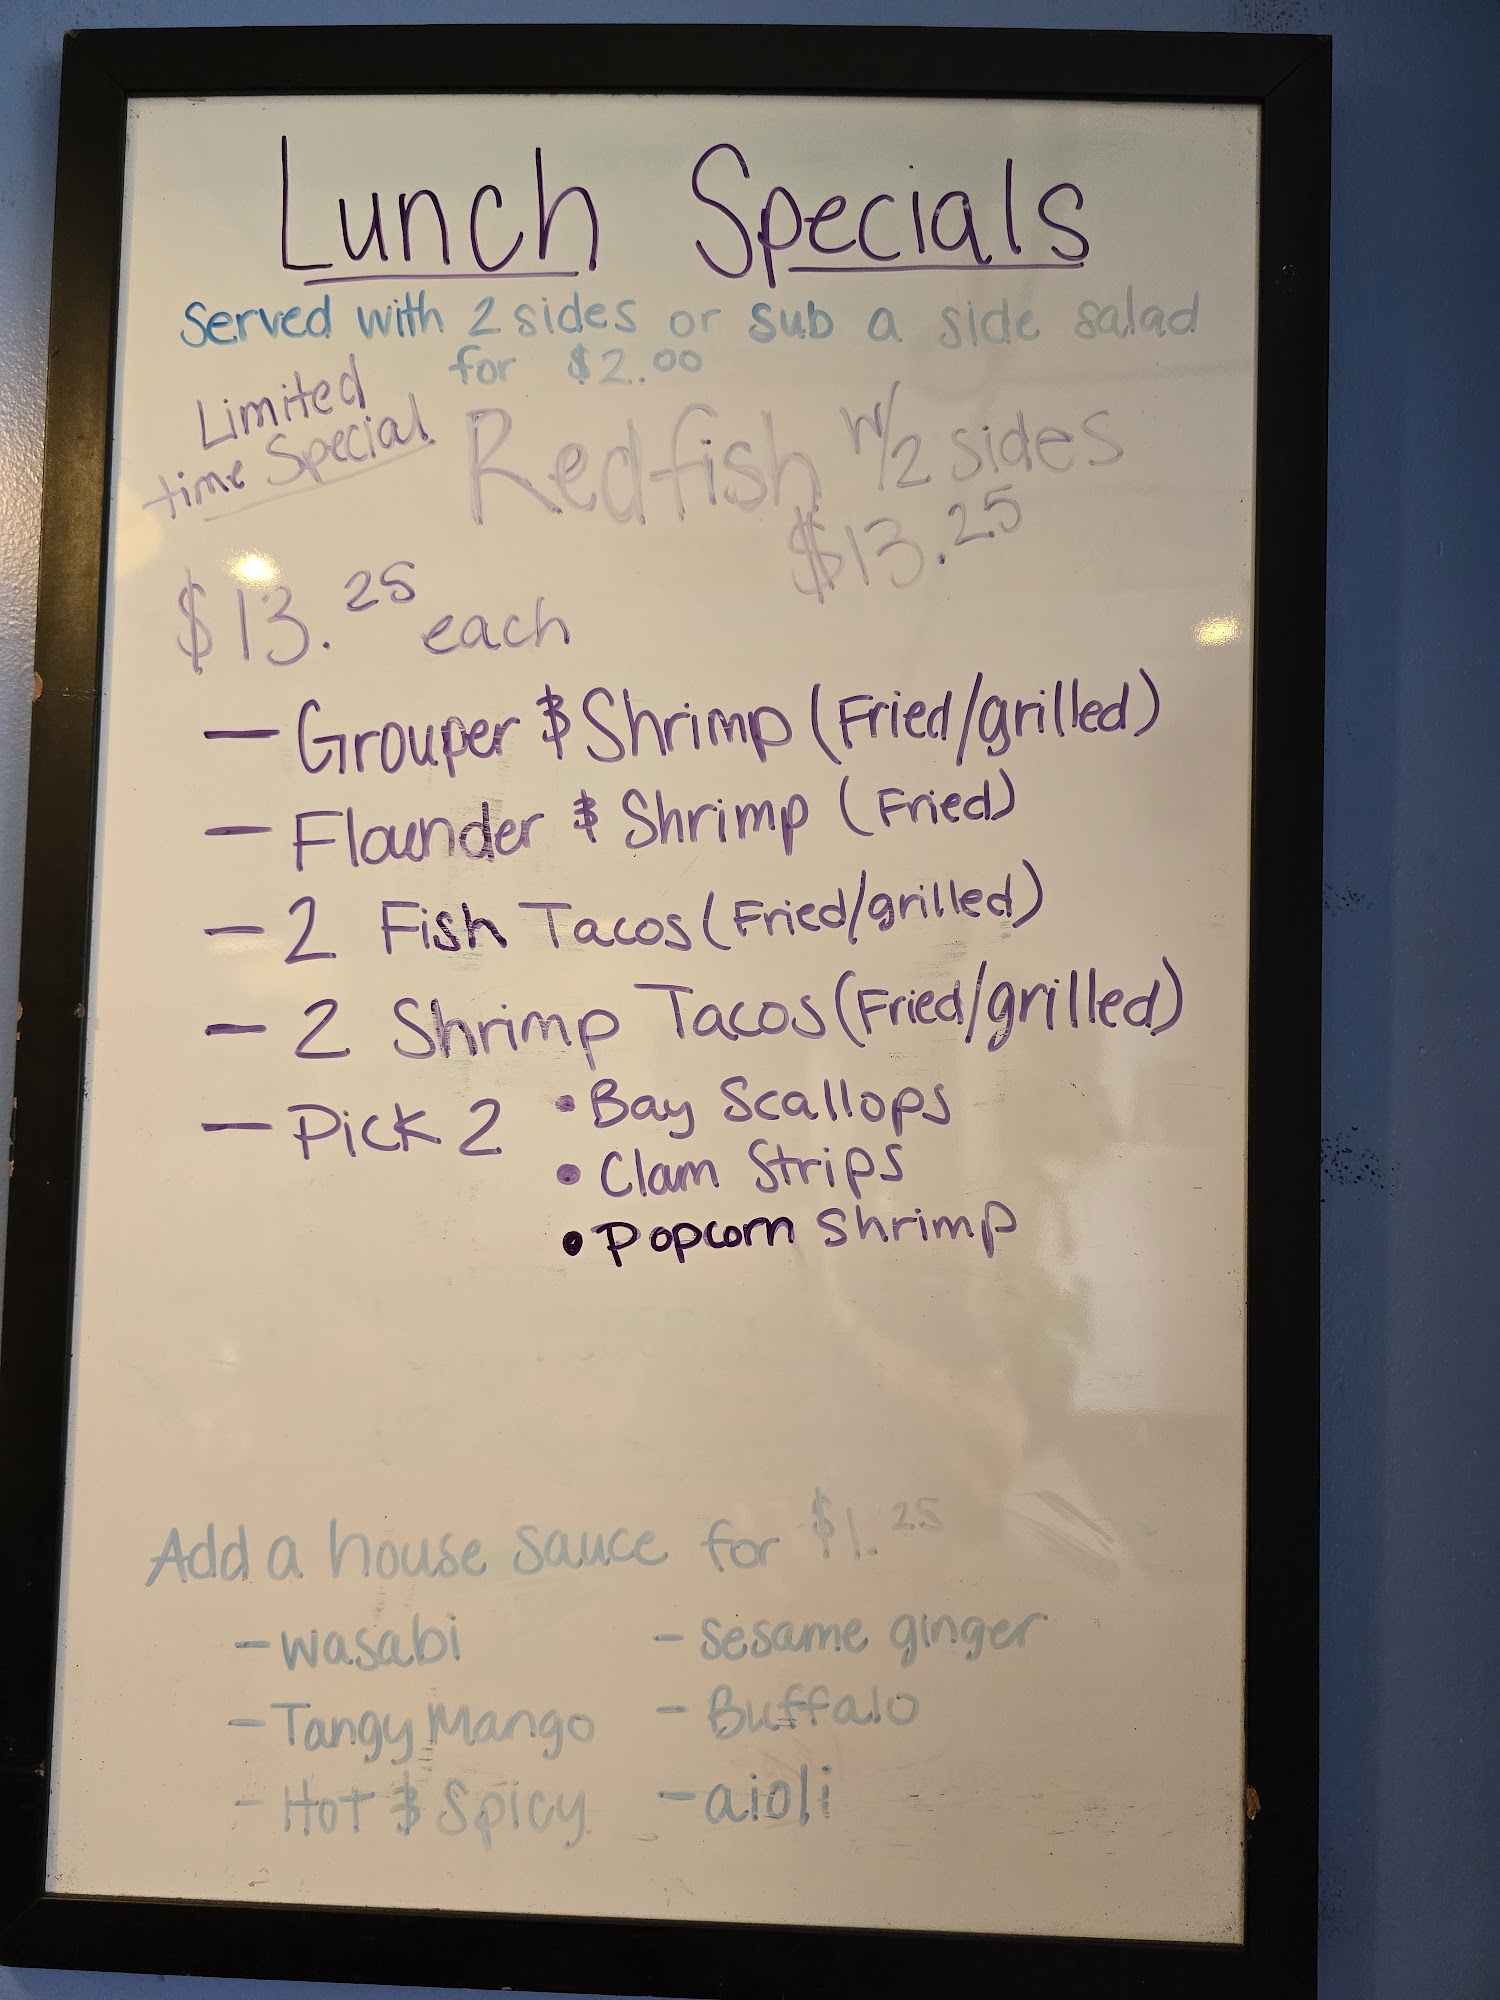 Lunch Specials
Served with 2 sides or sub a side salad
for $2.00
Limited
time Special
Redfish w/2 sides
$13.25
$13.25 each
- Grouper & Shrimp (Fried/grilled)
- Flounder & Shrimp (Fried)
- 2 Fish Tacos (Fried/grilled)
- 2 Shrimp Tacos (Fried/grilled)
- Pick 2 • Bay Scallops
• Clam Strips
• Popcorn Shrimp
Add a house sauce for $1.25
- wasabi - sesame ginger
- Tangy Mango - Buffalo
- Hot & Spicy - aioli